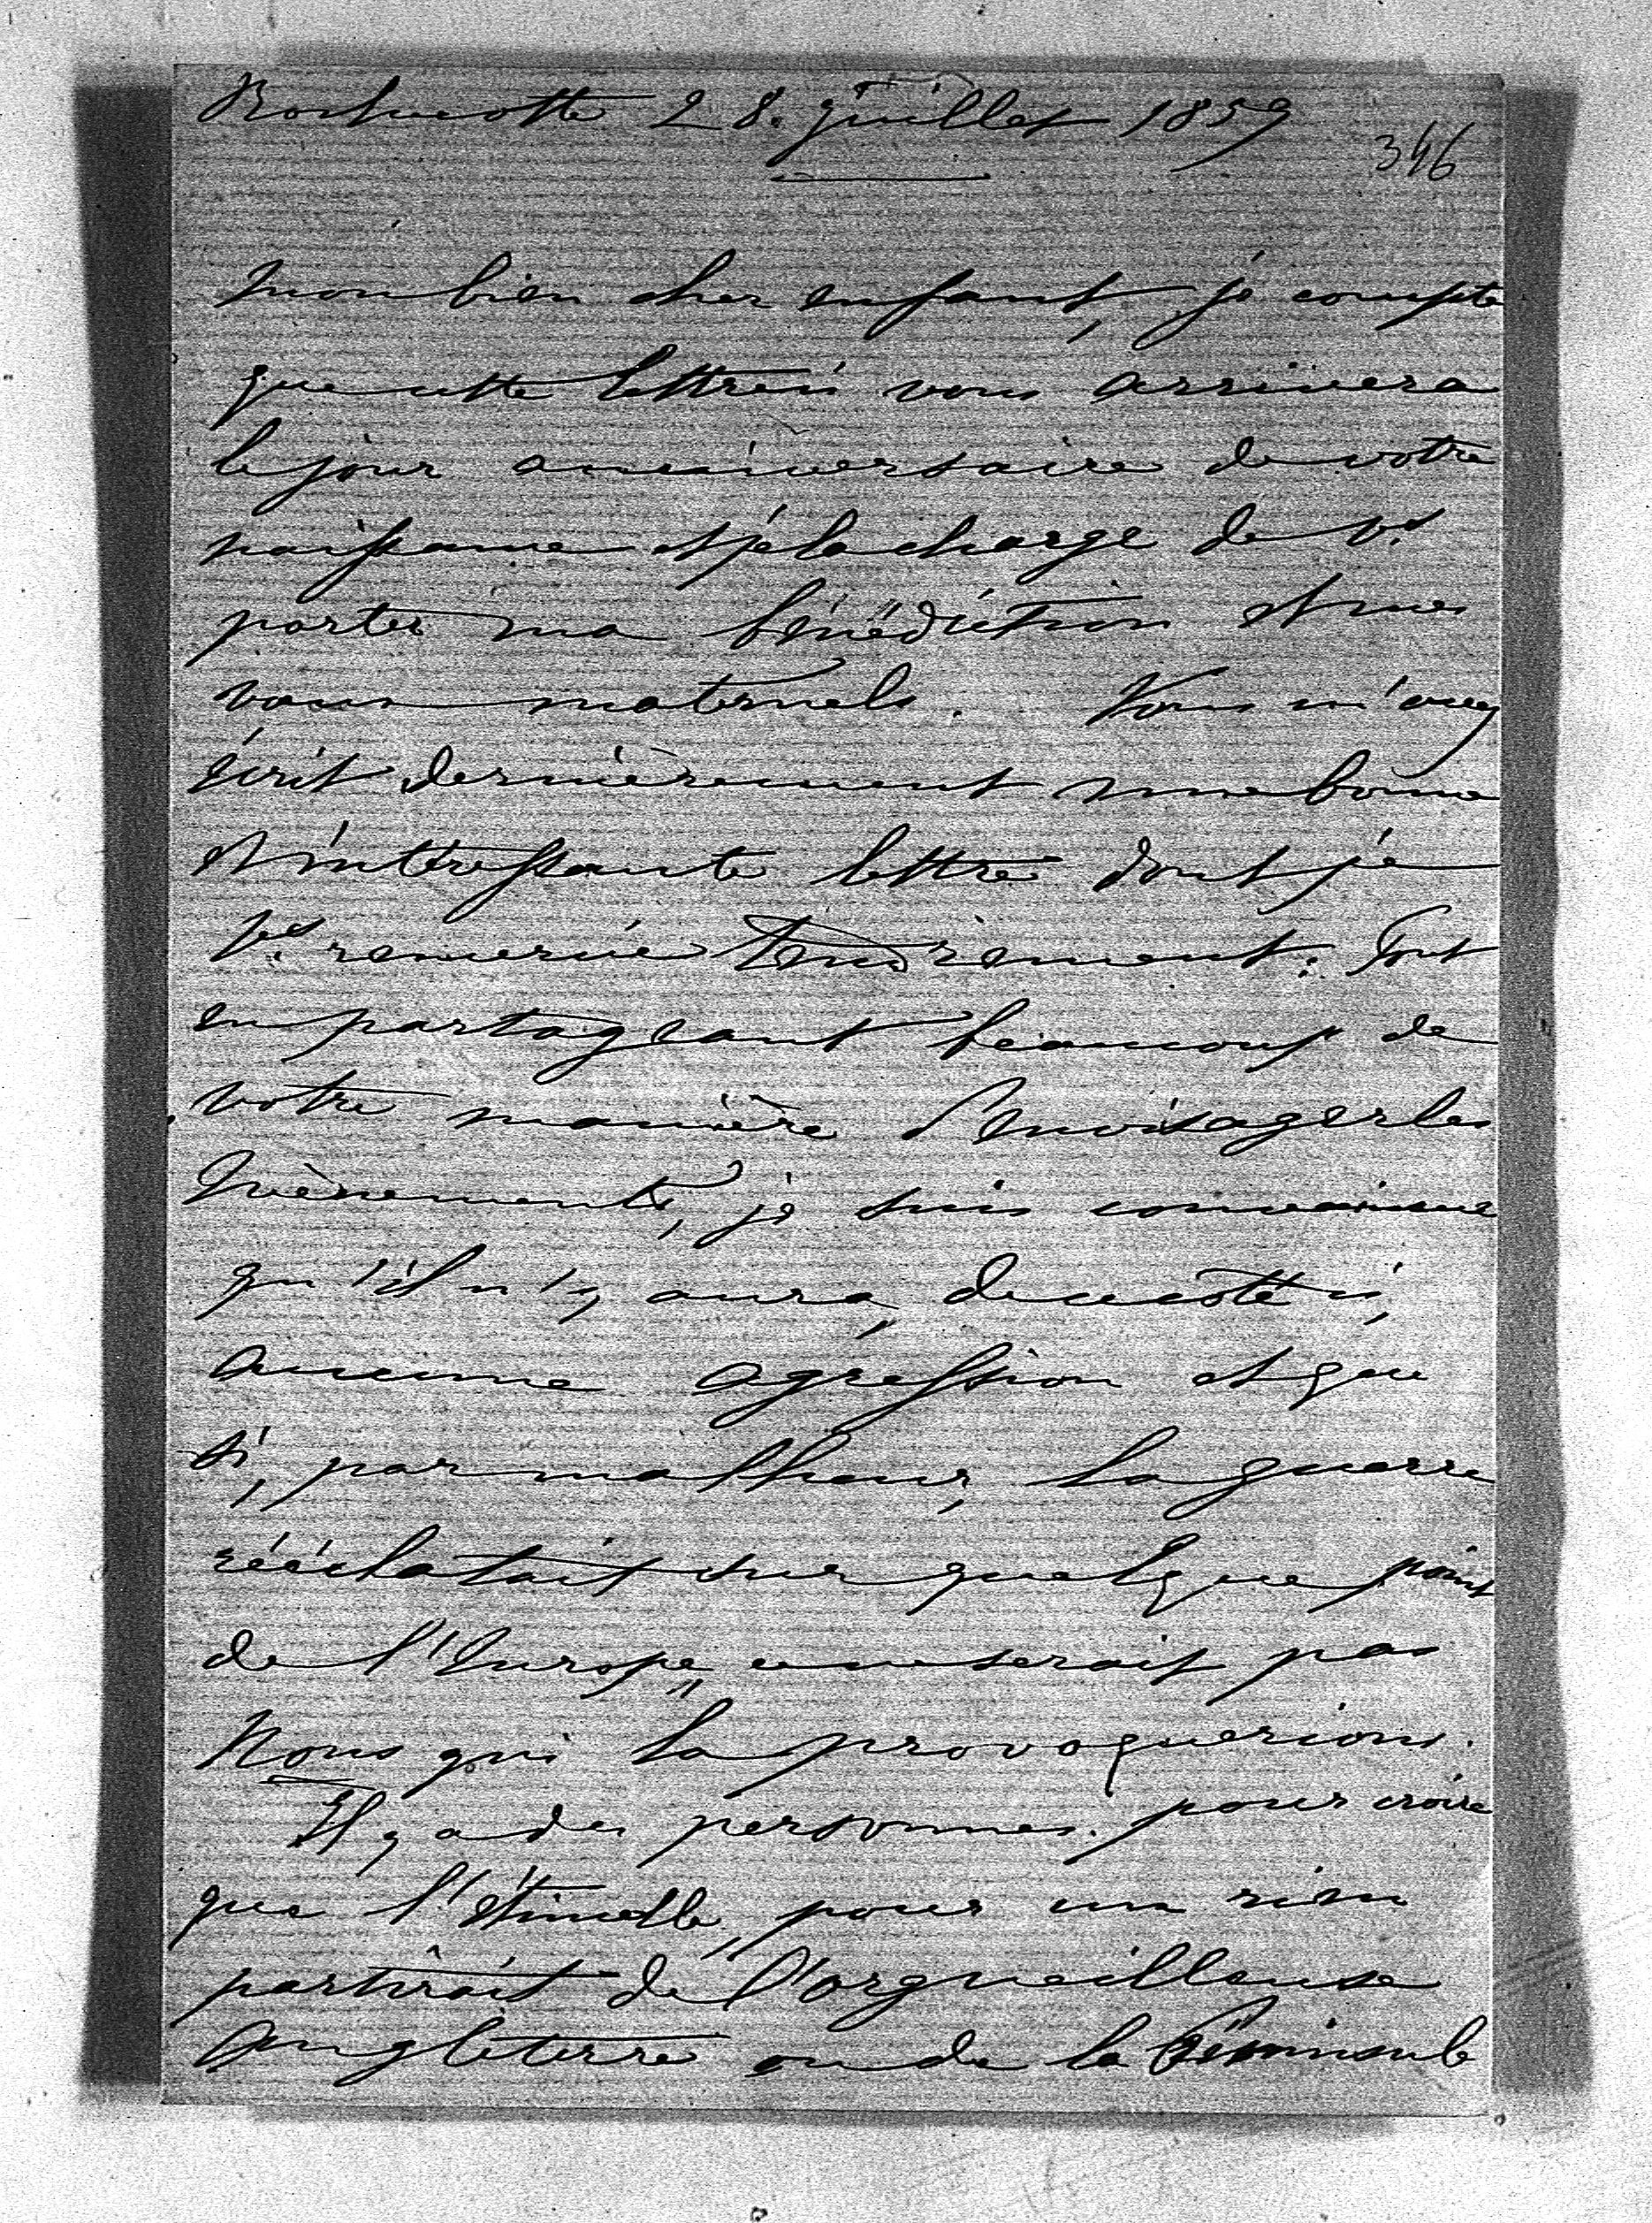 Rochecotte 28. juillet 1859
346
Mon bien cher enfant, je compte
que cette lettre ci vous arrivera
le jour anniversaire de votre
naissance et je la charge de vs
porter ma bénédiction et mes
vœux maternels. Vous m'avez
écrit dernièrement une bonne
et intéressante lettre dont je
vs remercie tendrement. Tout
en partageant beaucoup de
votre manière d'envisager les
évènements, je suis convaincue
qu'il n'y aura, de ce côté ci,
aucune agression et que
si, par malheur, la guerre
rééclatait sur quelque point
de l'Europe, ce ne serait pas
Nous qui la provoquerions.
Il y a des personnes pour croire
que l'étincelle, pour un rien
partirait de l'orgueilleuse
Angleterre ou de la Péninsule